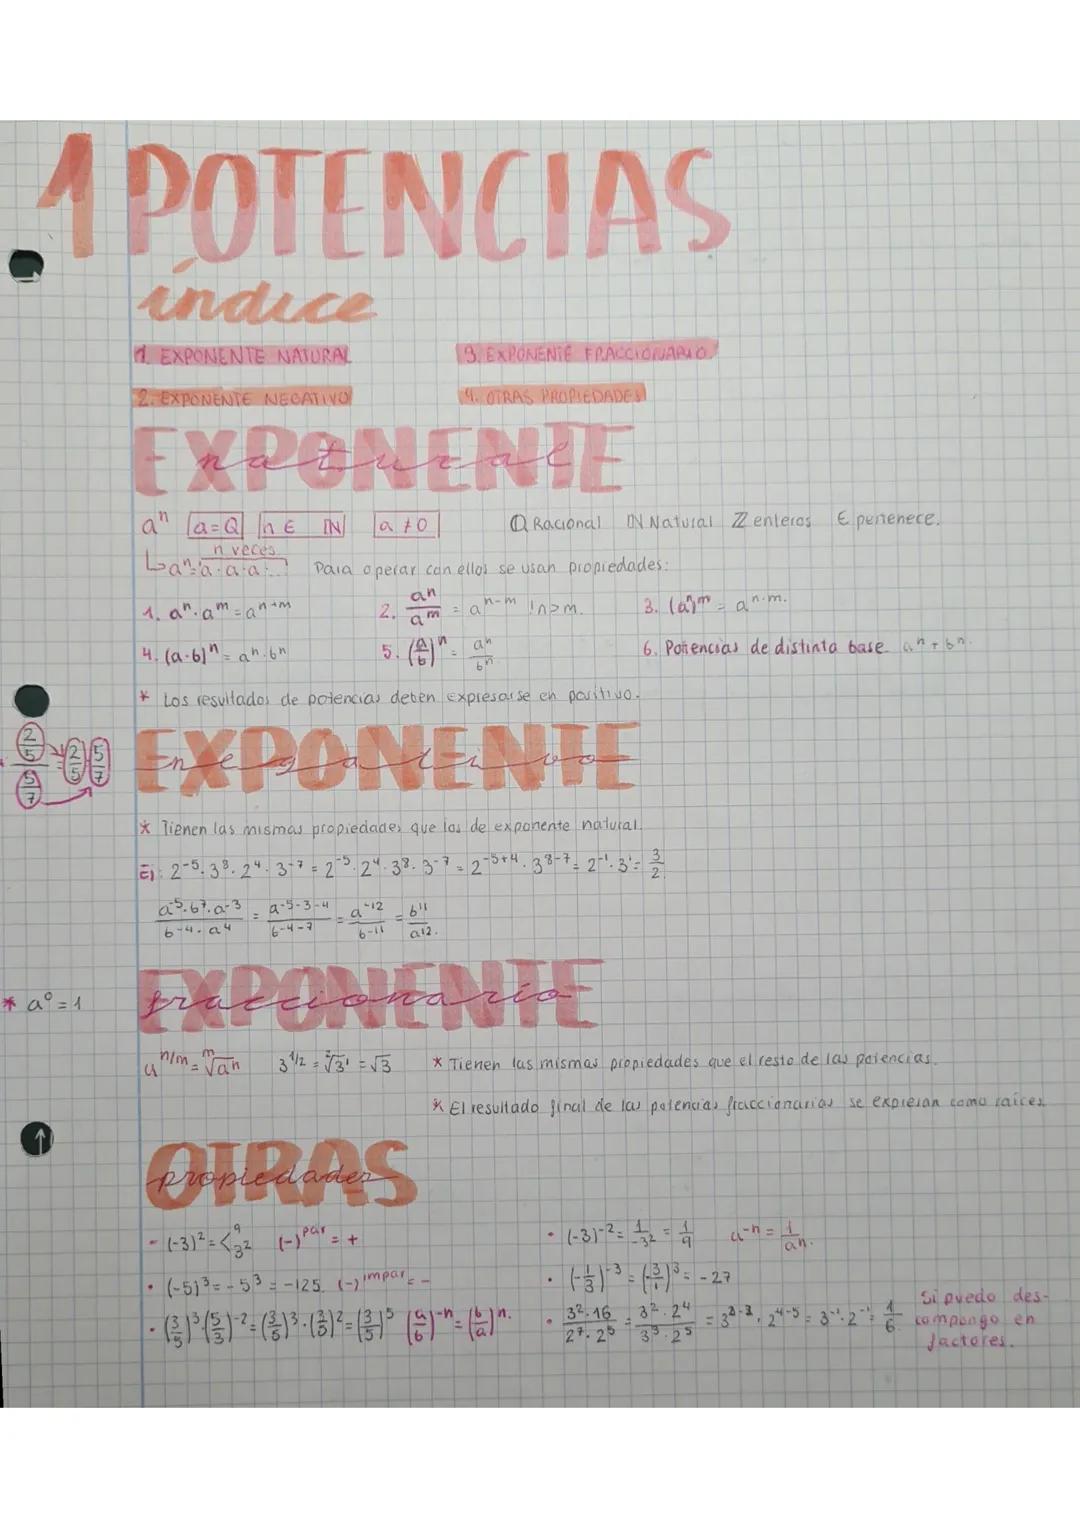 1 POTENCIAS
índice
1. EXPONENTE NATURAL
3. EXPONENTE FRACCIONARIO
2. EXPONENTE NEGATIVO
4. OTRAS PROPIEDADES
EXPONENTE
natural
aⁿ a=Q n ∈ ℕ a ≠ 0 ℚ Racional ℕ Natural ℤ enteros ∈ pertenece.
n veces
↳ aⁿ = a·a·a·... Para operar con ellos se usan propiedades:
1. aⁿ·aᵐ = aⁿ⁺ᵐ 2. aⁿ/aᵐ = aⁿ⁻ᵐ !n>m. 3. (aⁿ)ᵐ = aⁿ·ᵐ.
4. (a·b)ⁿ = aⁿ·bⁿ 5. (a/b)ⁿ = aⁿ/bⁿ 6. Potencias de distinta base aⁿ + bⁿ.
* Los resultados de potencias deben expresarse en positivo.
(2/5)/(5/7) = 2/5 · 5/7
EXPONENTE
negativo
* Tienen las mismas propiedades que los de exponente natural.
Ej: 2⁻⁵·3⁸·2⁴·3⁻⁷ = 2⁻⁵·2⁴·3⁸·3⁻⁷ = 2⁻⁵⁺⁴·3⁸⁻⁷ = 2⁻¹·3¹ = 3/2.
(a⁻⁵·b⁷·a⁻³)/(b⁻⁴·a⁴) = (a⁻⁵⁻³⁻⁴)/(b⁻⁴⁻⁷) = a⁻¹²/b⁻¹¹ = b¹¹/a¹².
EXPONENTE
fraccionario
* a⁰ = 1
a^(n/m) = ᵐ√aⁿ 3^(1/2) = ²√3¹ = √3 * Tienen las mismas propiedades que el resto de las potencias.
* El resultado final de las potencias fraccionarias se expresan como raíces
OTRAS
propiedades
- (-3)² = < 9 3² (-)^par = +
• (-3)⁻² = 1/-3² = 1/9 a⁻ⁿ = 1/aⁿ.
• (-5)³ = -5³ = -125. (-)^impar = -
• (-1/3)⁻³ = (-3/1)³ = -27
• (3/5)³·(5/3)⁻² = (3/5)³·(3/5)² = (3/5)⁵ (a/b)⁻ⁿ = (b/a)ⁿ.
• (3²·16)/(27·2⁵) = (3²·2⁴)/(3³·2⁵) = 3²⁻³·2⁴⁻⁵ = 3⁻¹·2⁻¹ = 1/6
Si puedo des-
compongo en
factores.